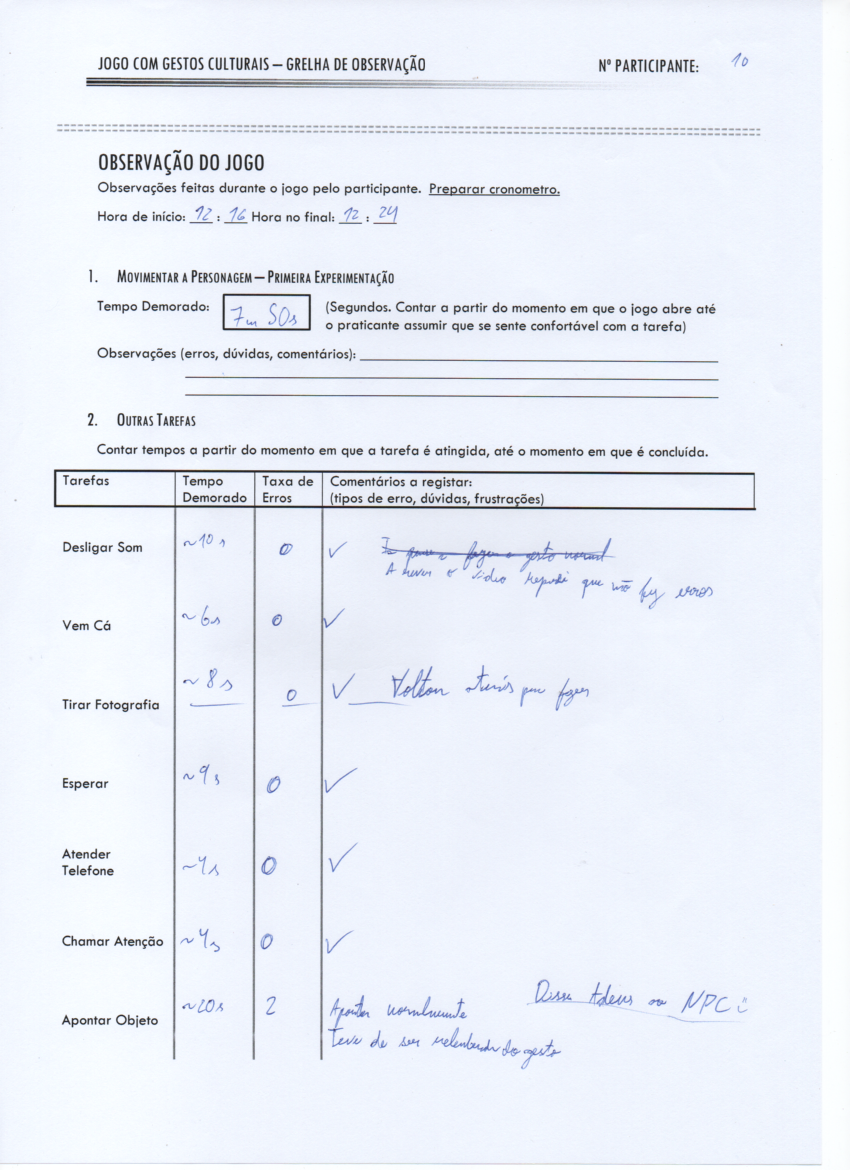 JOGO COM GESTOS CULTURAIS – GRELHA DE OBSERVAÇÃO Nº PARTICIPANTE: 10
OBSERVAÇÃO DO JOGO
Observações feitas durante o jogo pelo participante. Preparar cronometro.
Hora de início: 12 : 16 Hora no final: 12 : 24
1. MOVIMENTAR A PERSONAGEM – PRIMEIRA EXPERIMENTAÇÃO
Tempo Demorado: 7m 50s (Segundos. Contar a partir do momento em que o jogo abre até
o praticante assumir que se sente confortável com a tarefa)
Observações (erros, dúvidas, comentários):
2. OUTRAS TAREFAS
Contar tempos a partir do momento em que a tarefa é atingida, até o momento em que é concluída.
Tarefas Tempo Taxa de Comentários a registar:
Demorado Erros (tipos de erro, dúvidas, frustrações)
Desligar Som ~10s 0 ✓ fazer o gesto normal
A rever o video reparei que não fez erros
Vem Cá ~6s 0 ✓
Tirar Fotografia ~8s 0 ✓ Voltou atrás para fazer
Esperar ~9s 0 ✓
Atender
Telefone ~4s 0 ✓
Chamar Atenção ~4s 0 ✓
Apontar Objeto ~20s 2 Apontar normalmente Disse Adeus ao NPC
Teve de ser relembrado do gesto